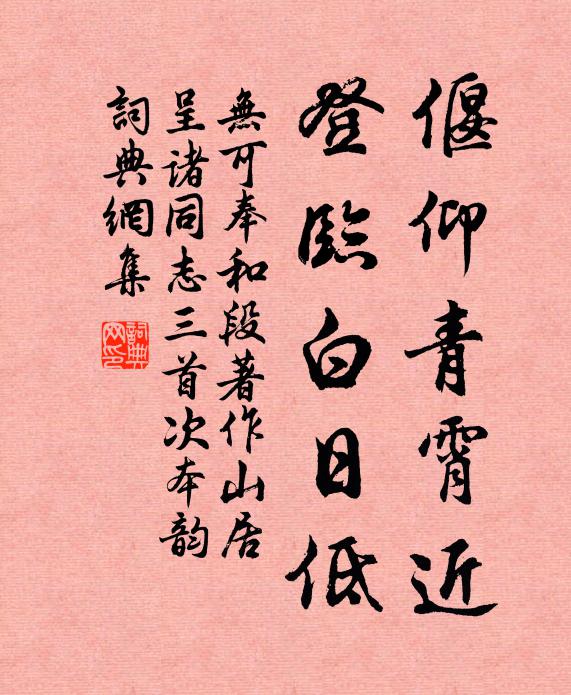 偃仰青霄近
登臨白日低
無可奉和段著作山居
呈诸同志三首次本韵
詞典網集
詞典网印